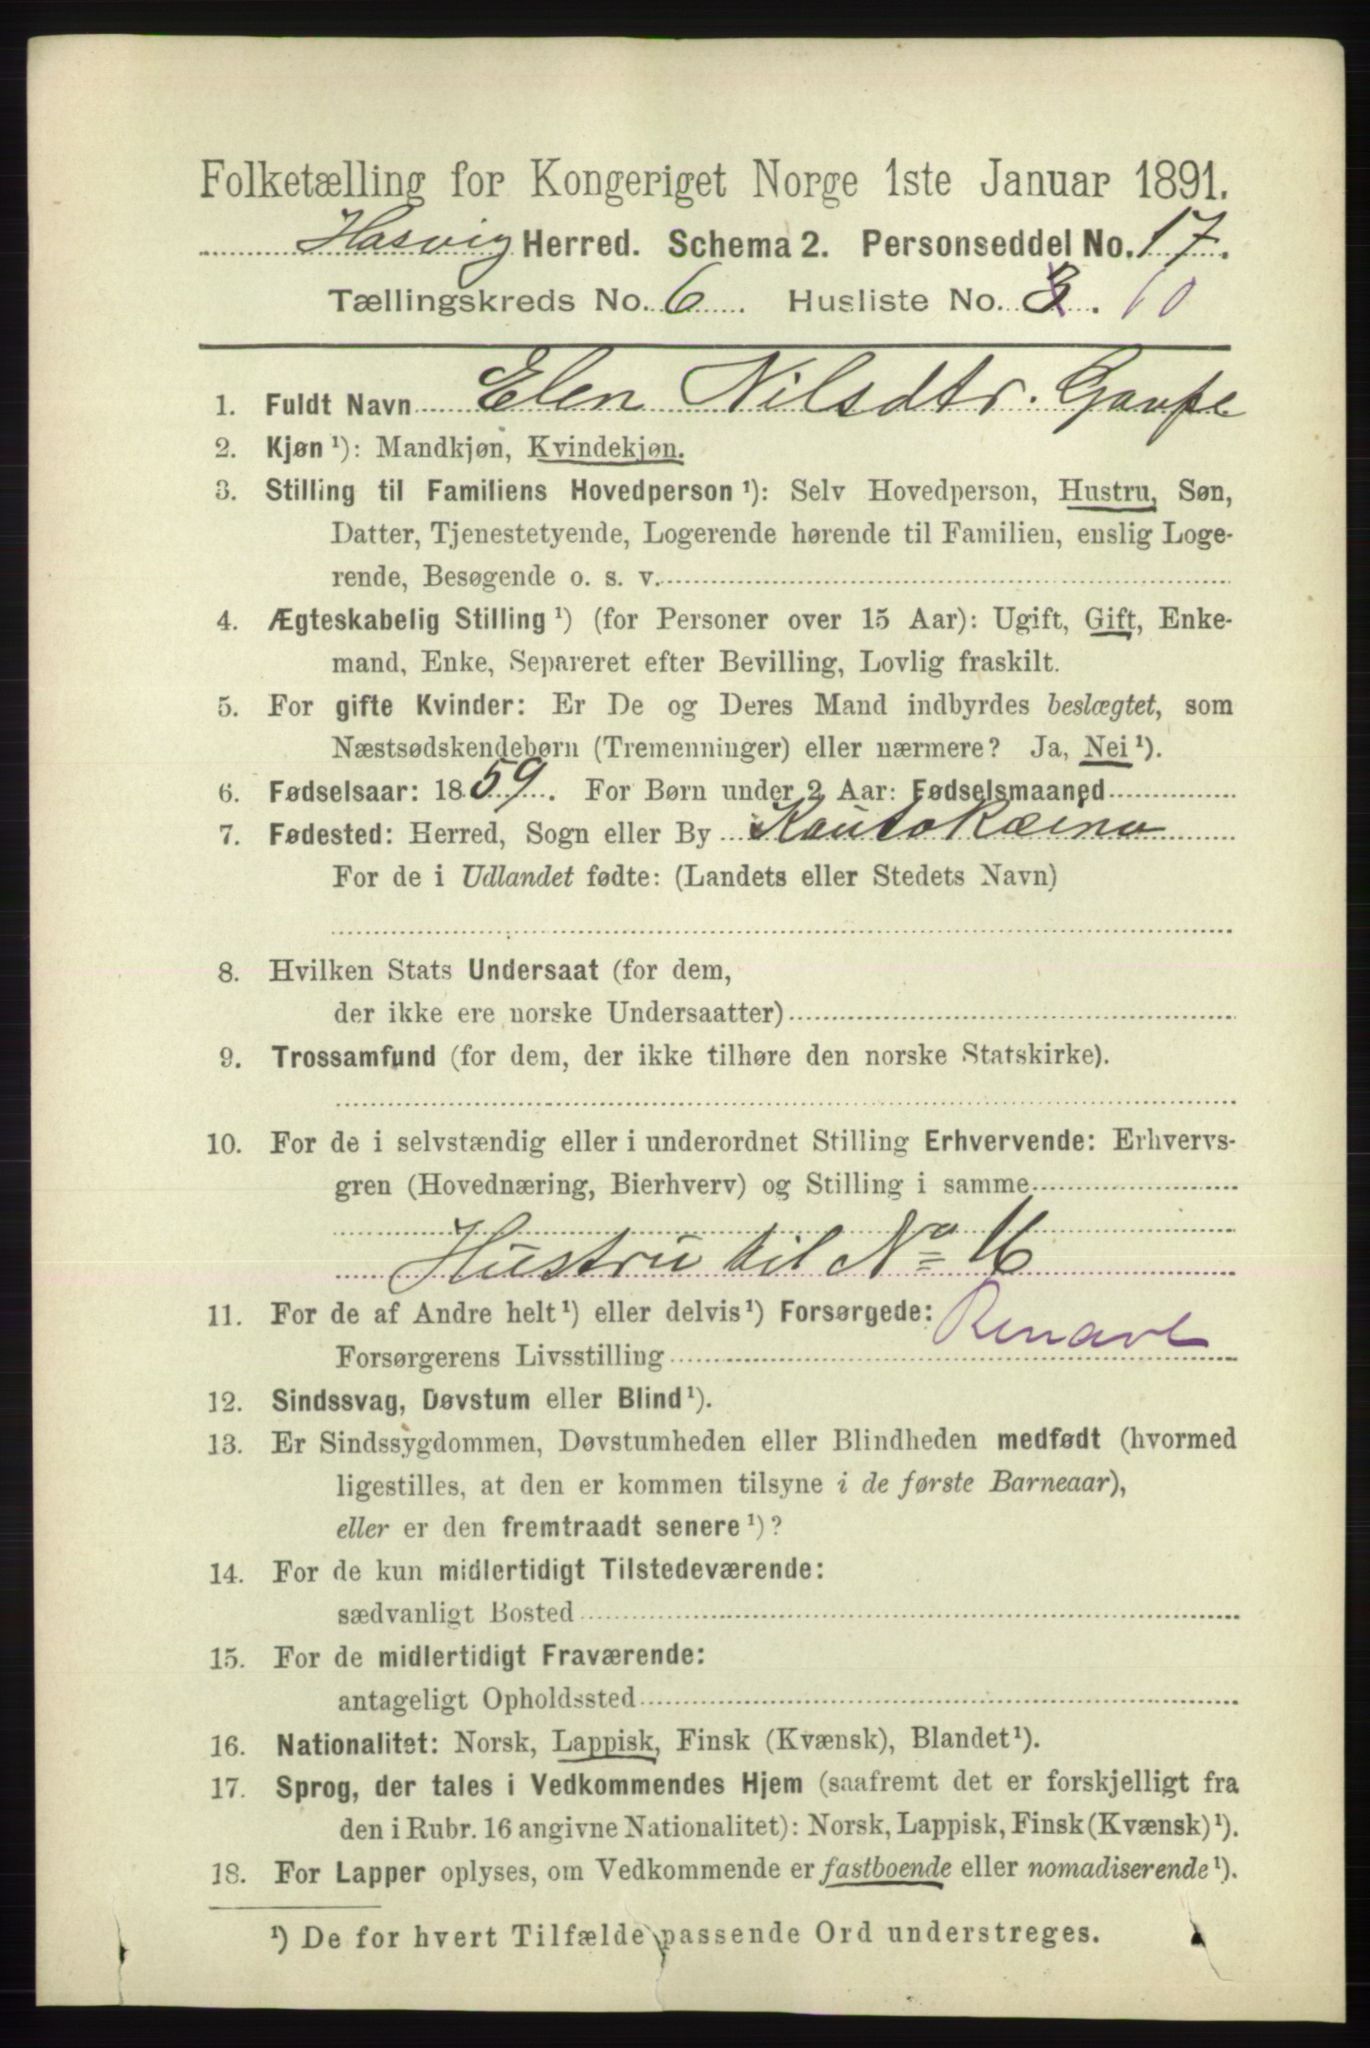 Folketælling for Kongeriget Norge 1ste Januar 1891.
Hasvig Herred. Schema 2. Personseddel No. 17.
Tællingskreds No. 6. Husliste No. 3. 10
1. Fuldt Navn Elen Nilsdtr. Gaupe
2. Kjøn ¹): Mandkjøn, Kvindekjøn.
3. Stilling til Familiens Hovedperson ¹): Selv Hovedperson, Hustru, Søn,
Datter, Tjenestetyende, Logerende hørende til Familien, enslig Loge-
rende, Besøgende o. s. v.
4. Ægteskabelig Stilling ¹) (for Personer over 15 Aar): Ugift, Gift, Enke-
mand, Enke, Separeret efter Bevilling, Lovlig fraskilt.
5. For gifte Kvinder: Er De og Deres Mand indbyrdes beslægtet, som
Næstsødskendebørn (Tremenninger) eller nærmere? Ja, Nei ¹).
6. Fødselsaar: 1859. For Børn under 2 Aar: Fødselsmaaned
7. Fødested: Herred, Sogn eller By Kautokæino
For de i Udlandet fødte: (Landets eller Stedets Navn)
8. Hvilken Stats Undersaat (for dem,
der ikke ere norske Undersaatter)
9. Trossamfund (for dem, der ikke tilhøre den norske Statskirke).
10. For de i selvstændig eller i underordnet Stilling Erhvervende: Erhvervs-
gren (Hovednæring, Bierhverv) og Stilling i samme
Hustru til No 16
11. For de af Andre helt ¹) eller delvis ¹) Forsørgede:
Forsørgerens Livsstilling
12. Sindssvag, Døvstum eller Blind ¹).
13. Er Sindssygdommen, Døvstumheden eller Blindheden medfødt (hvormed
ligestilles, at den er kommen tilsyne i de første Barneaar),
eller er den fremtraadt senere ¹)?
14. For de kun midlertidigt Tilstedeværende:
sædvanligt Bosted
15. For de midlertidigt Fraværende:
antageligt Opholdssted
16. Nationalitet: Norsk, Lappisk, Finsk (Kvænsk), Blandet ¹).
17. Sprog, der tales i Vedkommendes Hjem (saafremt det er forskjelligt fra
den i Rubr. 16 angivne Nationalitet): Norsk, Lappisk, Finsk (Kvænsk) ¹).
18. For Lapper oplyses, om Vedkommende er fastboende eller nomadiserende ¹).
¹) De for hvert Tilfælde passende Ord understreges.